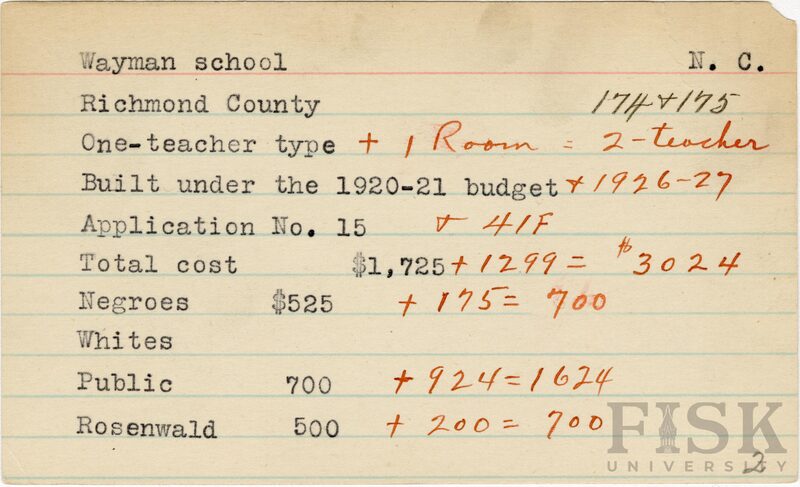 Wayman school N. C.
Richmond County 174+175
One-teacher type + 1 Room = 2-teacher
Built under the 1920-21 budget + 1926-27
Application No. 15 + 41F
Total cost $1,725 + 1299 = $3024
Negroes $525 + 175 = 700
Whites
Public 700 + 924 = 1624
Rosenwald 500 + 200 = 700
FISK
UNIVERSITY
2